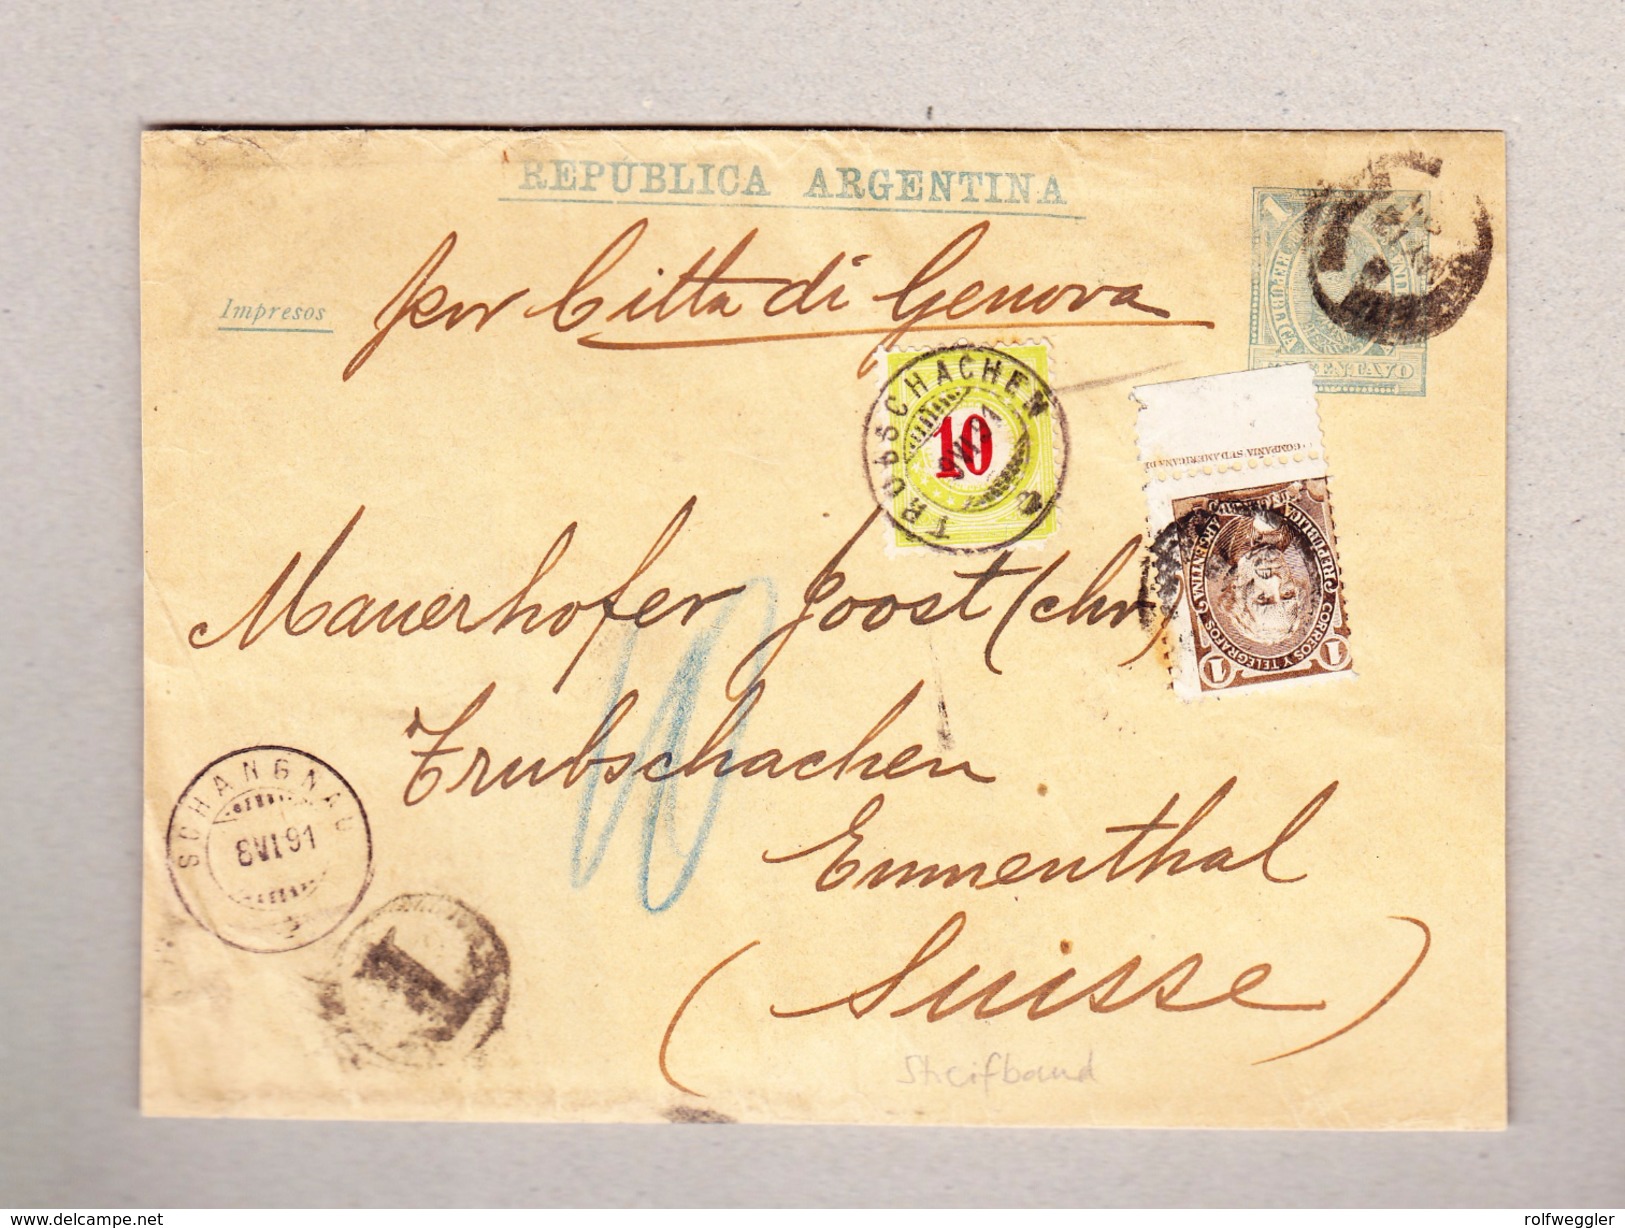 REPÚBLICA ARGENTINA
Impresos
per Citta di Genova
1
CENTAVO
TRUBSCHACHEN
8 VI 91
10
COMPAÑIA SUD AMERICANA DE
REPÚBLICA ARGENTINA
CORREOS Y TELEGRAFOS
1 1
Mauerhofer Joost (chr)
10
Trubschachen
Emmenthal
(Suisse)
SCHANGNAU
8 VI 91
T
Streifband
delcampe.net
rolfweggler